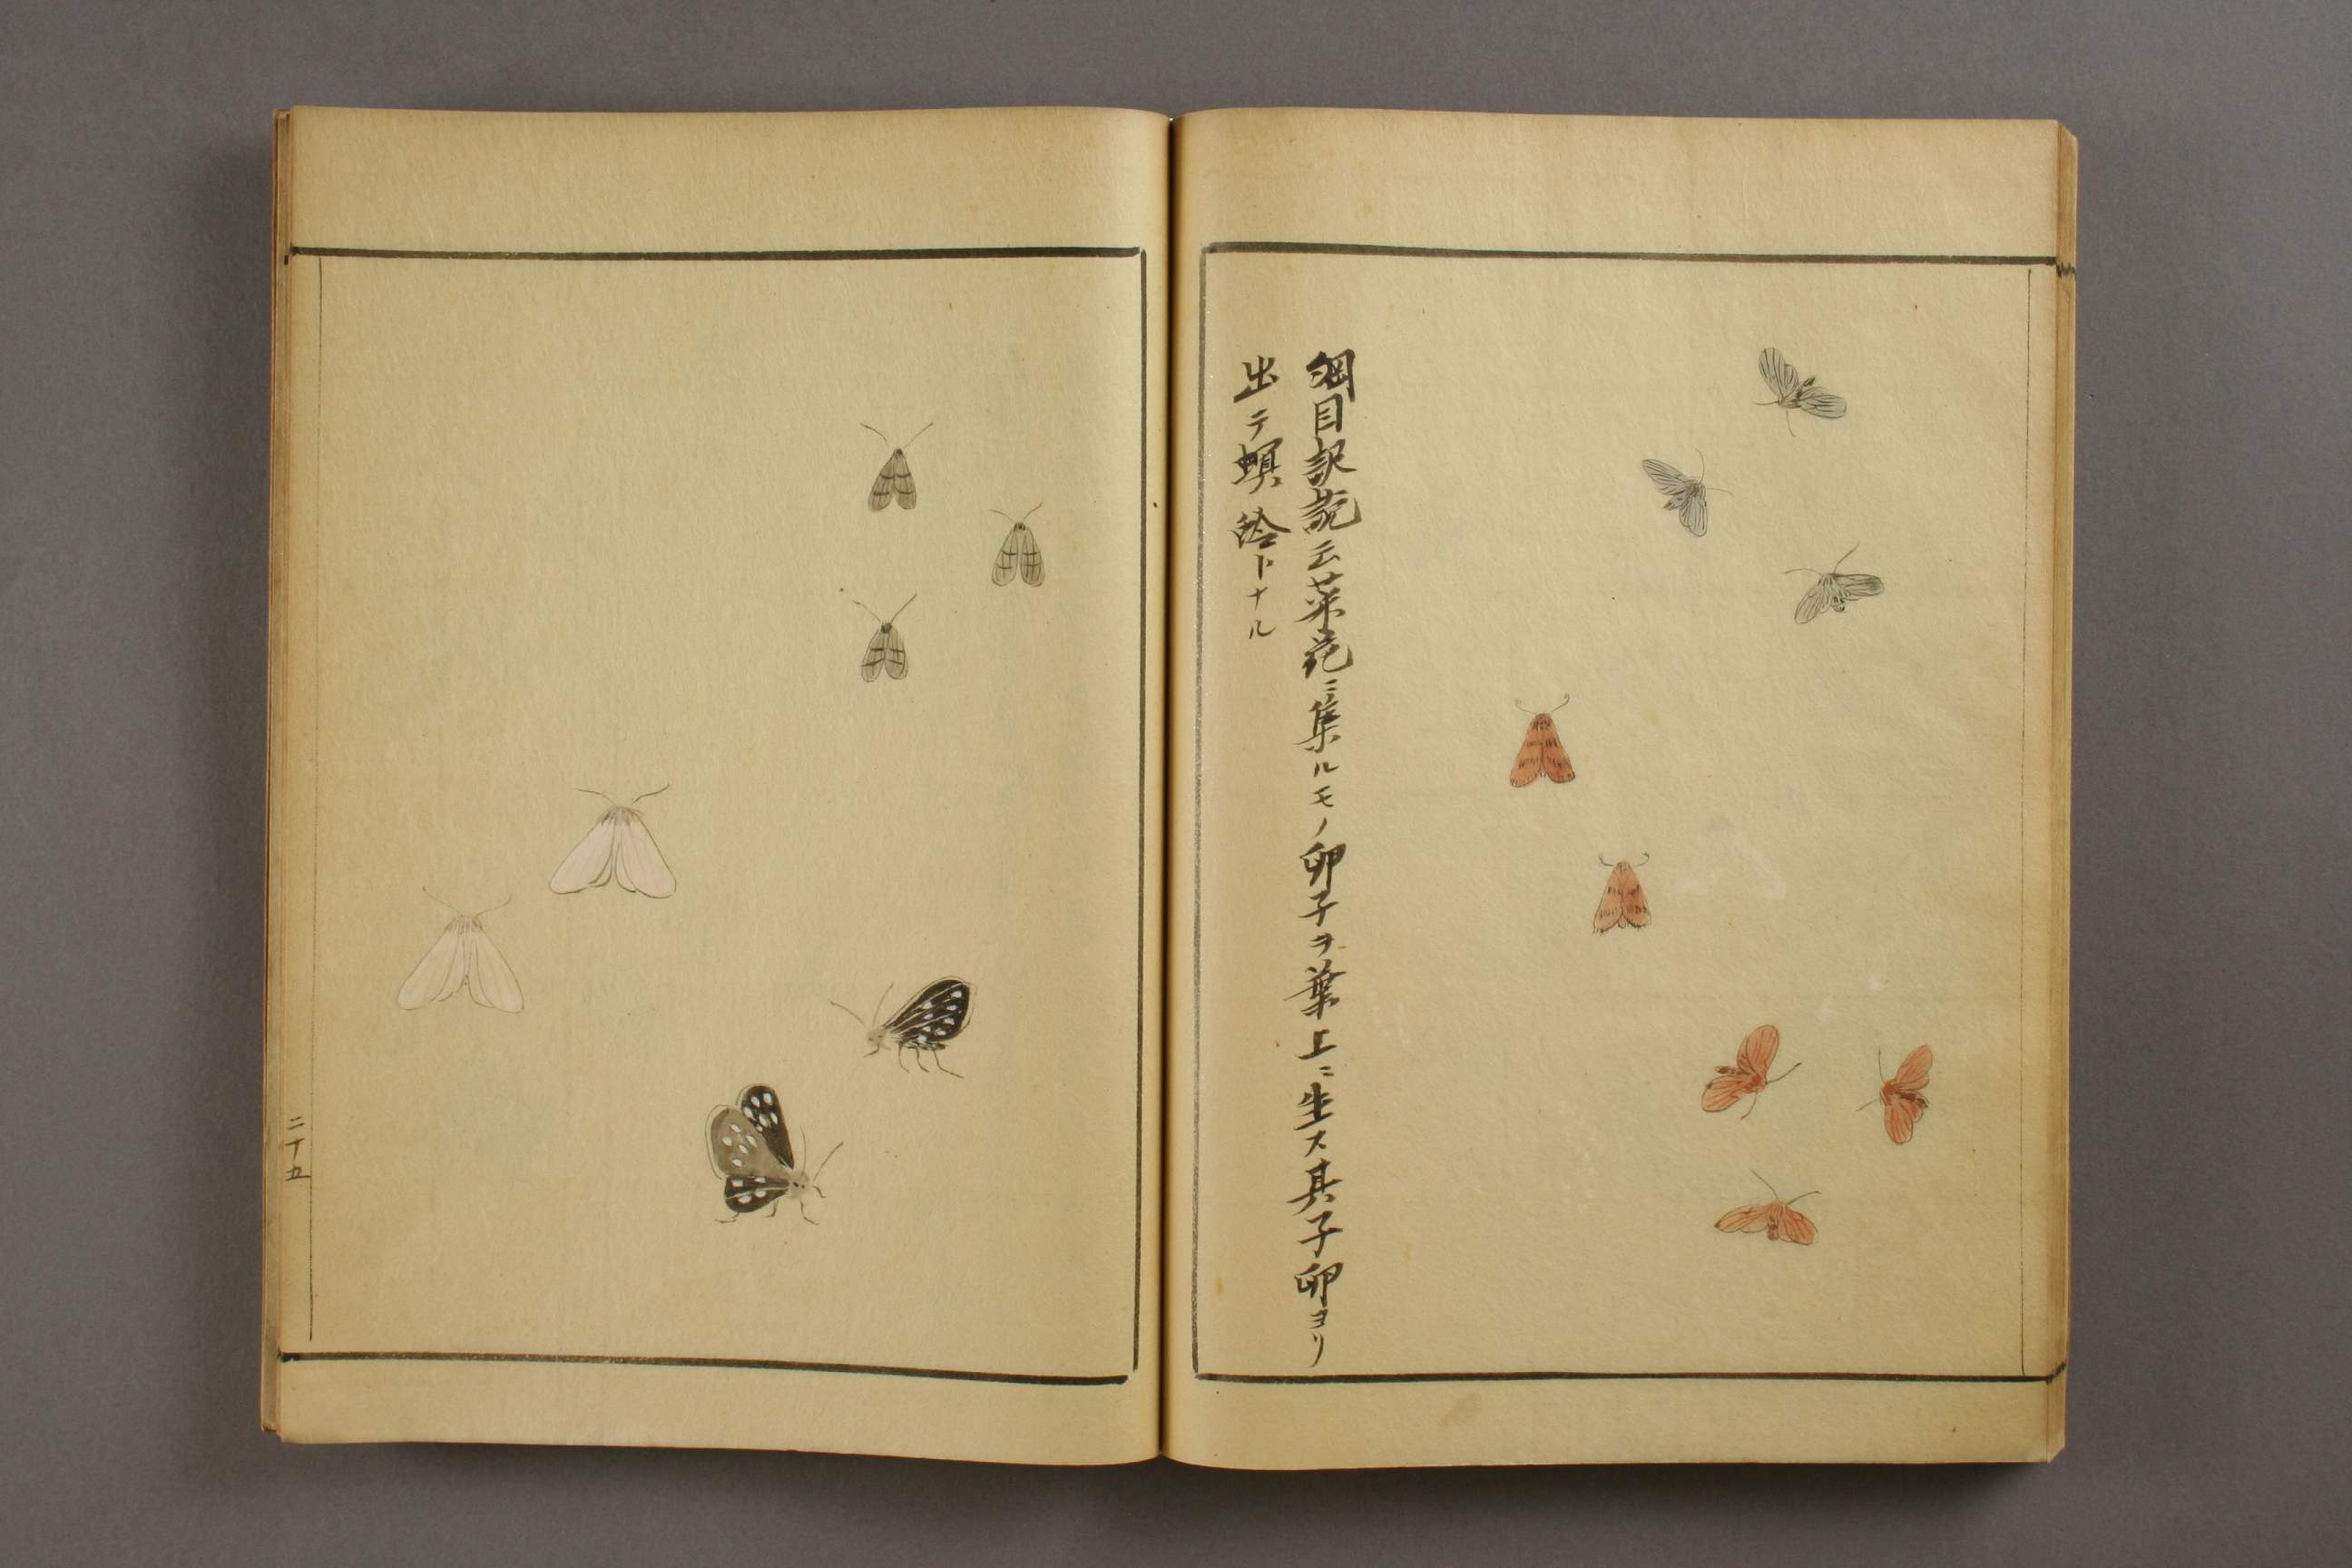 綱目訳説云菜花ニ集ルモノ卵子ヲ葉上ニ生ス其子卵ヨリ
出テ螟蛉トナル
二十五